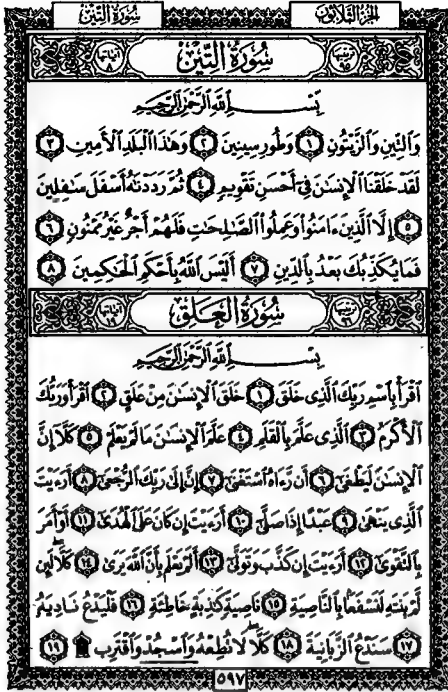 سُورَةُ التِّينِ
الجُزْءُ الثَّلَاثُونَ
ترتيبها ٩٥ سُورَةُ التِّينِ آياتها ٨
بِسْمِ اللَّهِ الرَّحْمَٰنِ الرَّحِيمِ
وَالتِّينِ وَالزَّيْتُونِ ١ وَطُورِ سِينِينَ ٢ وَهَٰذَا الْبَلَدِ الْأَمِينِ ٣
لَقَدْ خَلَقْنَا الْإِنسَٰنَ فِي أَحْسَنِ تَقْوِيمٍ ٤ ثُمَّ رَدَدْنَٰهُ أَسْفَلَ سَٰفِلِينَ
٥ إِلَّا الَّذِينَ ءَامَنُوا وَعَمِلُوا الصَّٰلِحَٰتِ فَلَهُمْ أَجْرٌ غَيْرُ مَمْنُونٍ ٦
فَمَا يُكَذِّبُكَ بَعْدُ بِالدِّينِ ٧ أَلَيْسَ اللَّهُ بِأَحْكَمِ الْحَٰكِمِينَ ٨
ترتيبها ٩٦ سُورَةُ العَلَقِ آياتها ١٩
بِسْمِ اللَّهِ الرَّحْمَٰنِ الرَّحِيمِ
اقْرَأْ بِاسْمِ رَبِّكَ الَّذِي خَلَقَ ١ خَلَقَ الْإِنسَٰنَ مِنْ عَلَقٍ ٢ اقْرَأْ وَرَبُّكَ
الْأَكْرَمُ ٣ الَّذِي عَلَّمَ بِالْقَلَمِ ٤ عَلَّمَ الْإِنسَٰنَ مَا لَمْ يَعْلَمْ ٥ كَلَّا إِنَّ
الْإِنسَٰنَ لَيَطْغَىٰ ٦ أَن رَّءَاهُ اسْتَغْنَىٰ ٧ إِنَّ إِلَىٰ رَبِّكَ الرُّجْعَىٰ ٨ أَرَءَيْتَ
الَّذِي يَنْهَىٰ ٩ عَبْدًا إِذَا صَلَّىٰ ١٠ أَرَءَيْتَ إِن كَانَ عَلَى الْهُدَىٰ ١١ أَوْ أَمَرَ
بِالتَّقْوَىٰ ١٢ أَرَءَيْتَ إِن كَذَّبَ وَتَوَلَّىٰ ١٣ أَلَمْ يَعْلَم بِأَنَّ اللَّهَ يَرَىٰ ١٤ كَلَّا لَئِن
لَّمْ يَنتَهِ لَنَسْفَعًا بِالنَّاصِيَةِ ١٥ نَاصِيَةٍ كَٰذِبَةٍ خَاطِئَةٍ ١٦ فَلْيَدْعُ نَادِيَهُ
١٧ سَنَدْعُ الزَّبَانِيَةَ ١٨ كَلَّا لَا تُطِعْهُ وَاسْجُدْ وَاقْتَرِب ۩ ١٩
٥٩٧